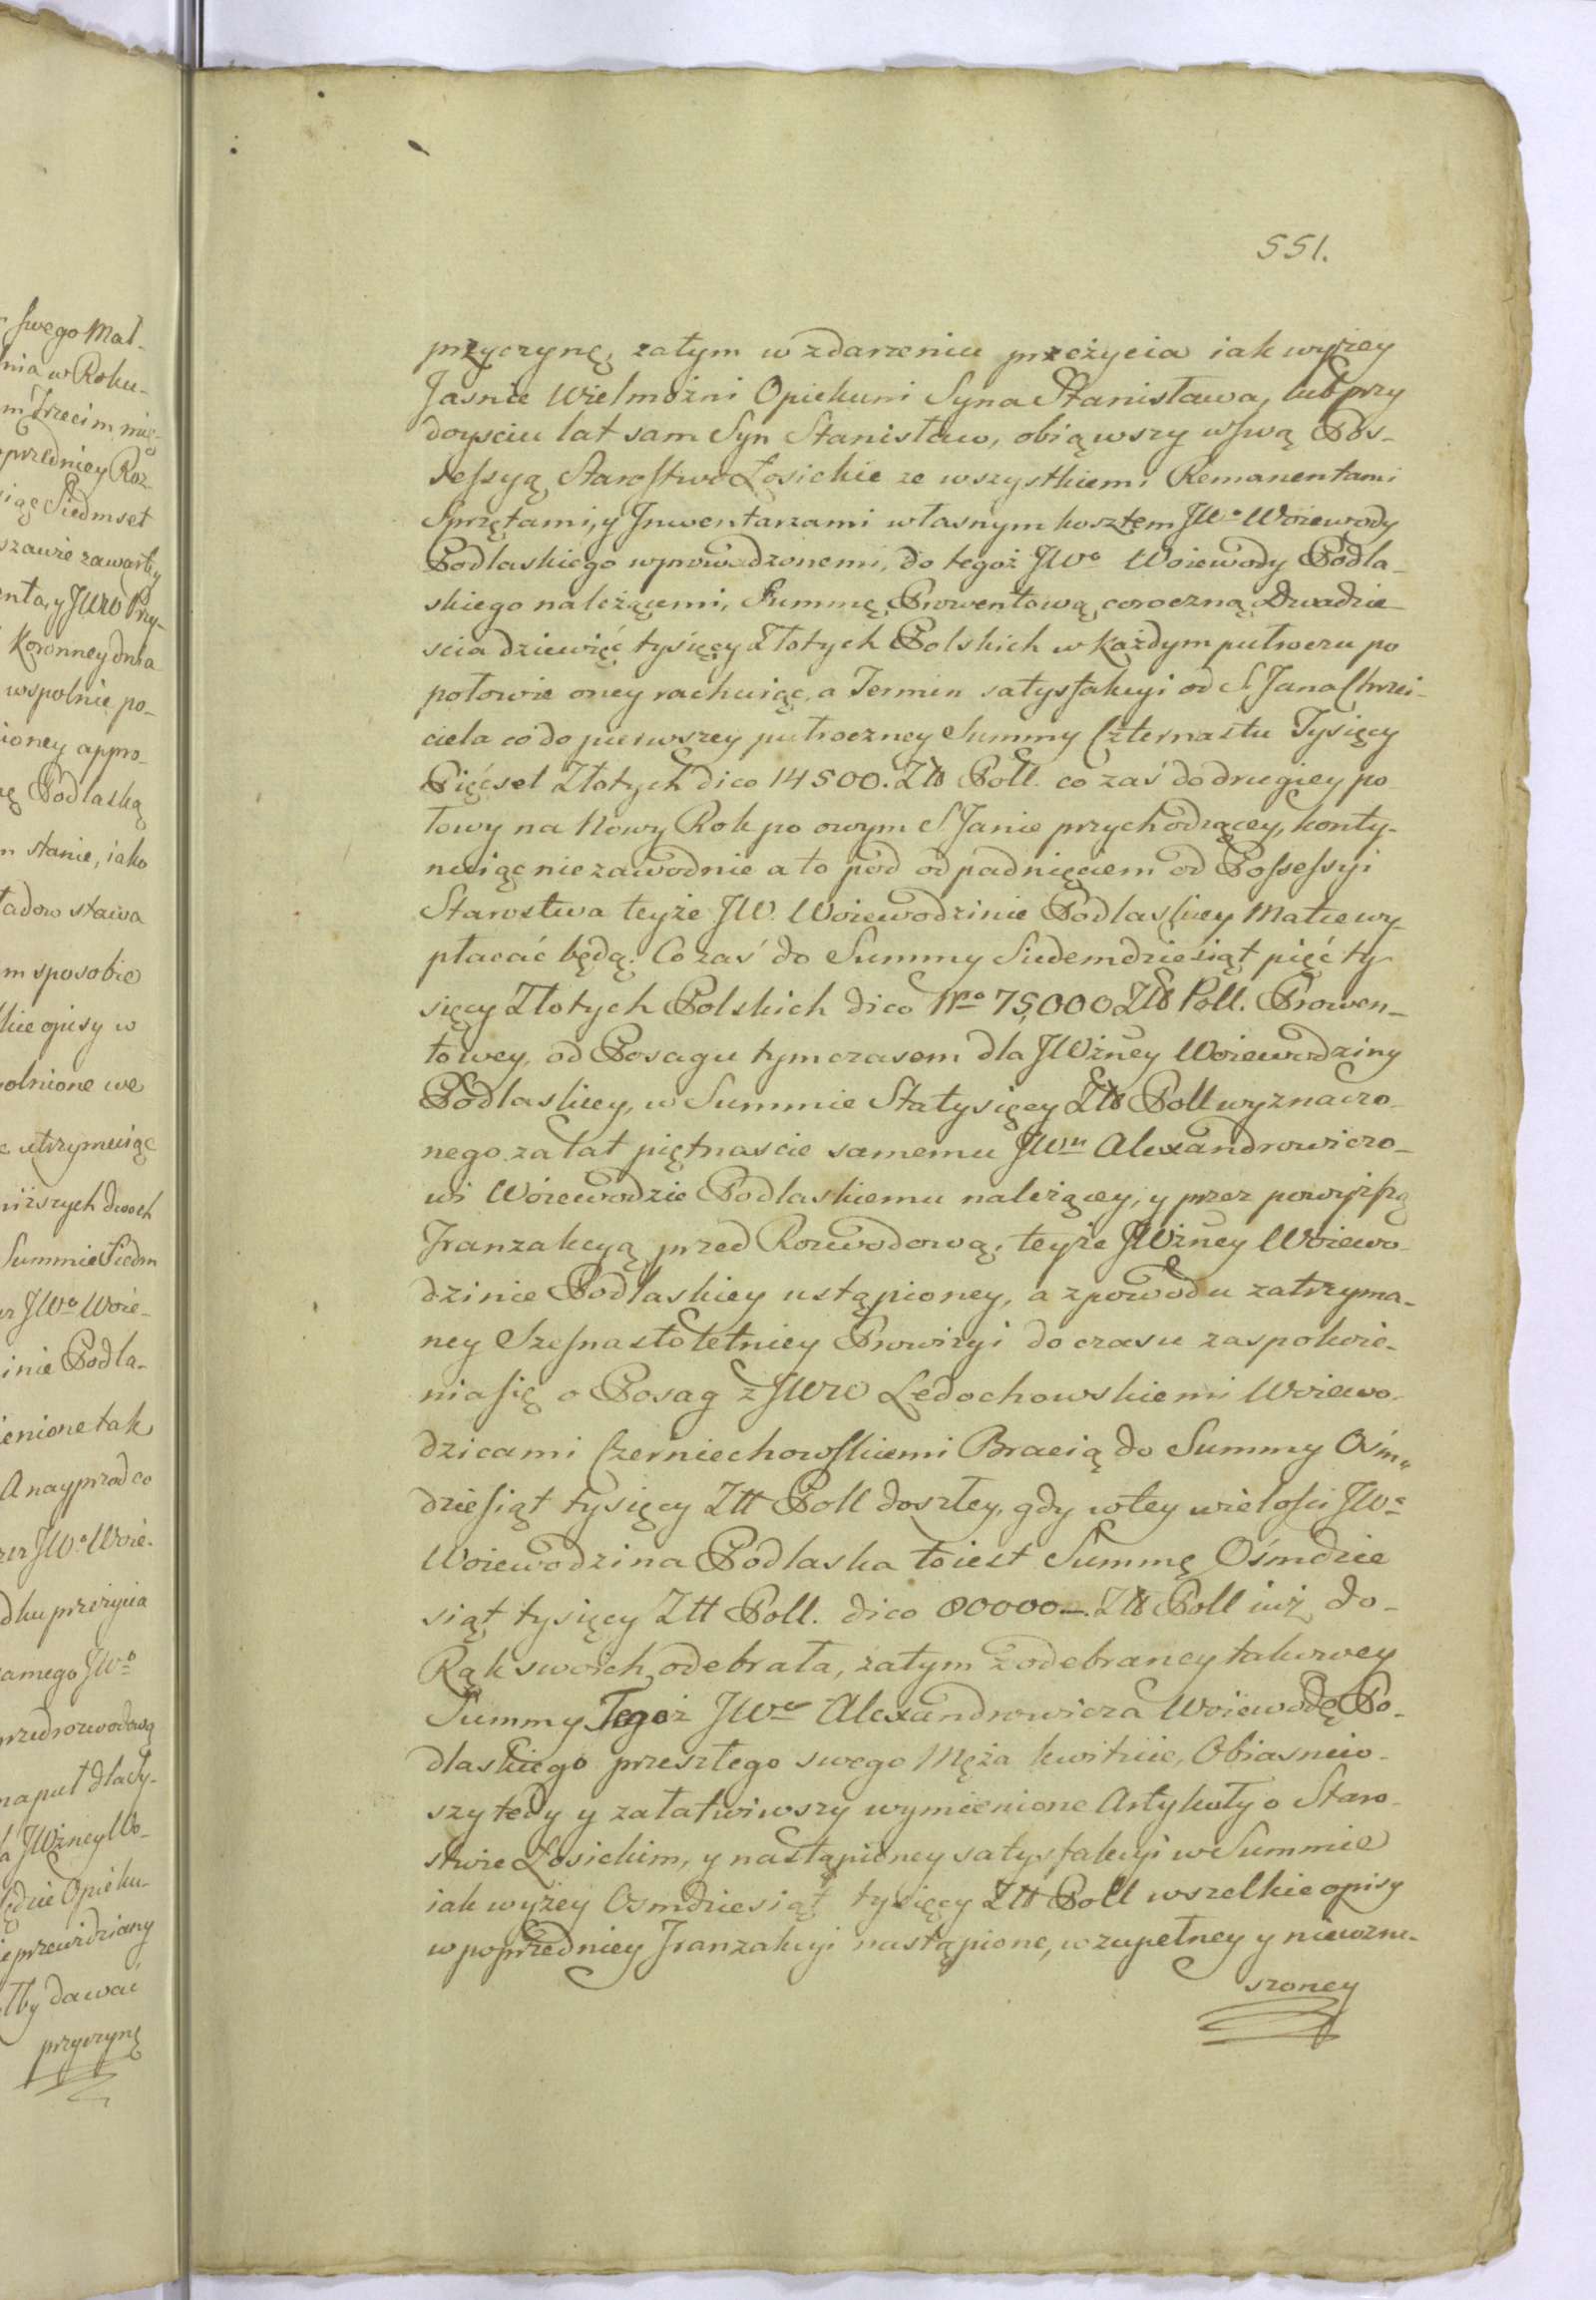 551.
przyczynę, zatym w zdarzeniu przeżycia iak wyżey
Jasnie Wielmożni Opiekuni Syna Stanisława, lub przy
doysciu lat sam Syn Stanisław, obiąwszy w swą Pos-
sessyą Starostwo Łosickie ze wszystkiemi Remanentami
Sprzętami, y Inwentarzami własnym kosztem JWo Woiewody
Podlaskiego wprowadzonemi, do tegoż JWo Woiewody Podla-
skiego należącemi, Summę Prowentową coroczną Dwadzie-
scia dziewięć tysięcy Złotych Polskich w każdym pułroczu po
połowie oney rachuiąc, a Termin satysfakcyi od S. Jana Chrzci-
ciela co do pierwszey pułroczney Summy Czternastu Tysięcy
Pięćset Złotych dico 14500. Złł Poll. co zaś do drugiey po-
łowy na Nowy Rok po owym S. Janie przychodzącey, konty-
nuiąc niezawodnie a to pod odpadnięciem od Possessyi
Starostwa teyże JW. Woiewodzinie Podlaskiey Matce wy-
płacać będą. Co zaś do Summy Siedemdziesiąt pięć ty-
sięcy Złotych Polskich dico Nro 75,000 Złł Poll. Prowen-
towey, od Posagu tymczasem dla JWżney Woiewodziny
Podlaskiey, w Summie Sta tysięcy Złł Poll wyznaczo-
nego za lat piętnascie samemu JWu Alexandrowiczo-
wi Woiewodzie Podlaskiemu należącey, y przez powyższą
Tranzakcyą przed Rozwodową, teyże JWżney Woiewo-
dzinie Podlaskiey ustąpioney, a z powodu zatrzyma-
ney Szesnastoletniey Prowizyi do czasu zaspokoie-
nia się o Posag z JWW Ledochowskiemi Woiewo-
dzicami Czerniechowskiemi Bracią do Summy Ośm-
dziesiąt tysięcy Złł Poll doszłey, gdy w tey wielości JWa
Woiewodzina Podlaska to iest Summę Ośmdzie
siąt tysięcy Złł Poll. dico 80000. Złł Poll iuż do-
Rąk swoich odebrała, zatym z odebraney takowey
Summy Tegoż JWo Alexandrowicza Woiewodę Po-
dlaskiego przeszłego swego Męża kwituie, Obiasniw-
szy tedy y załatwiwszy wymienione Artykuły o Staro-
stwie Łosickim, y nastąpioney satysfakcyi w Summie
iak wyżey Osmdziesiąt tysięcy Złł Poll wszelkie opisy
w poprzedniey Tranzakcyi nastąpione, w zupełney y niewzru-
szoney
swego Mał-
nia w Roku-
Trzecim mię-
przedniey Roz
Siedmset
szawie zawartey
y JWW Pry-
Koronney dnia
wspolnie po-
ioney appro-
Podlaską
stanie, iako
stawa
m sposobie
opisy w
olnione we
utrzymuiąc
niższych dwoch
Summie Siedm
JWo Woie-
inie Podla-
ienione tak
A nayprzod co
JWo Woie-
przeżycia
samego JWo
przedrozwodową
JWżney Wo-
Opieku-
przewidziany
dawać
przyczynę